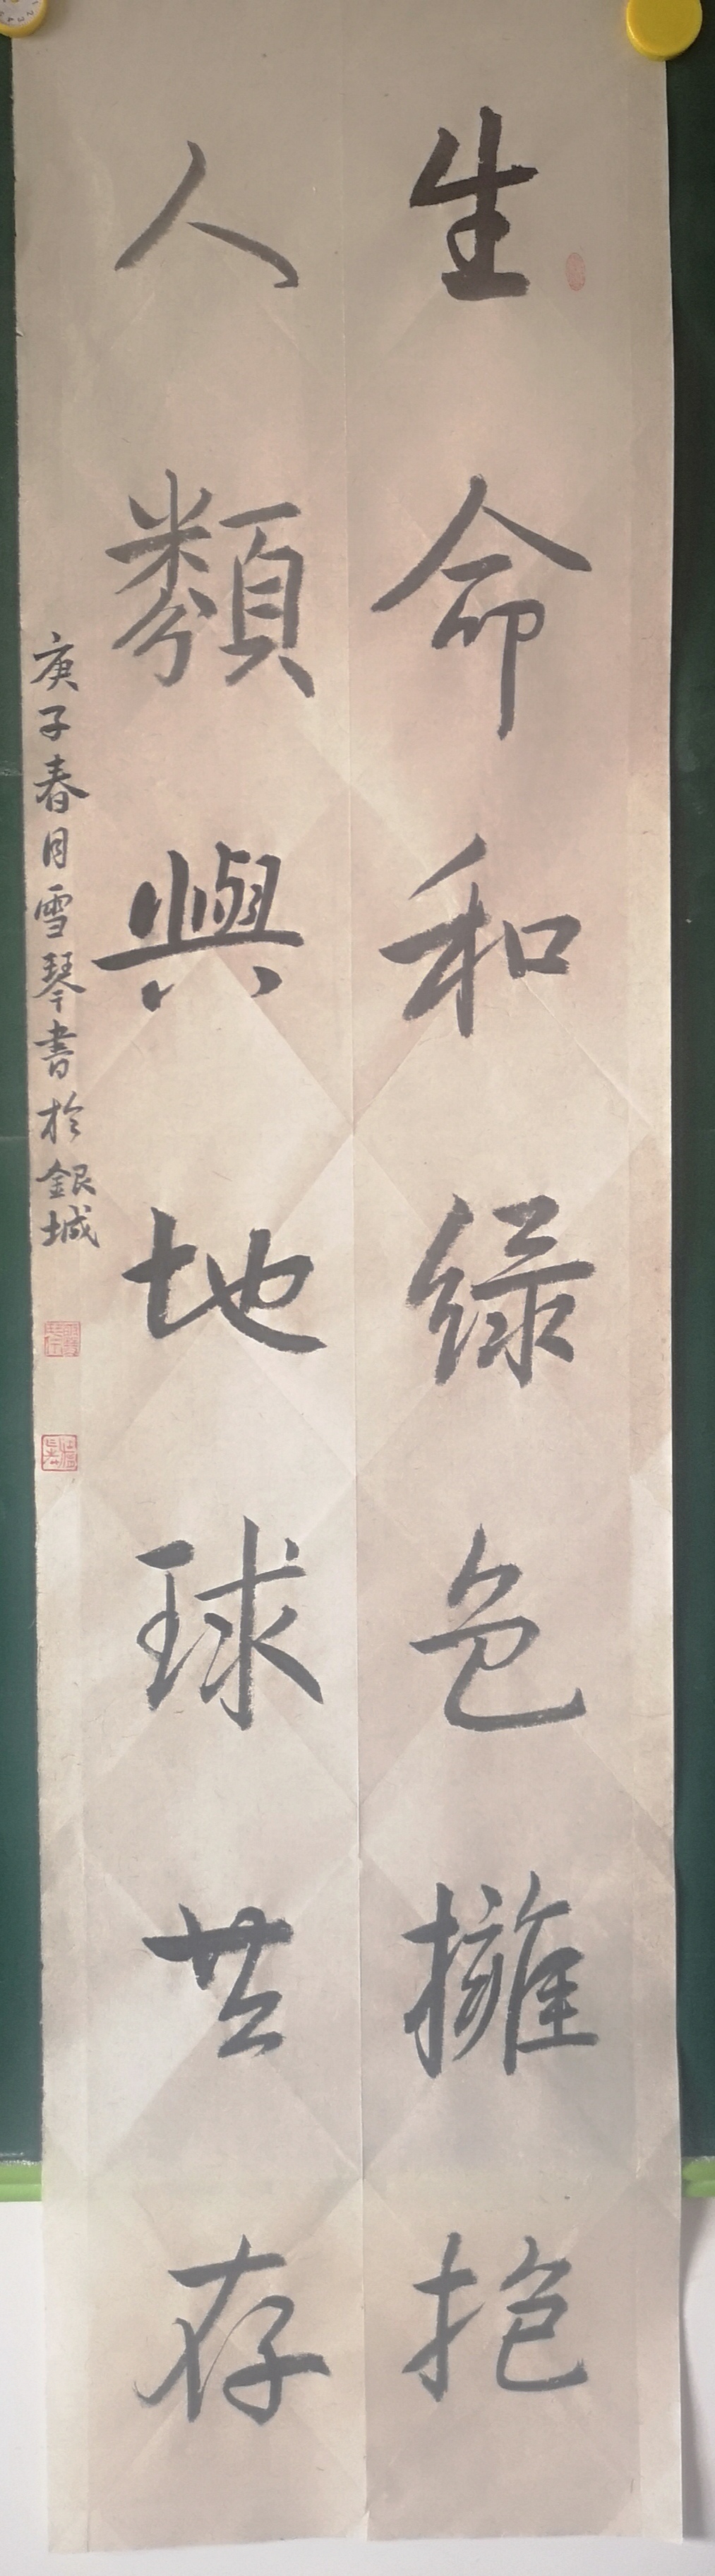 生命和绿色擁抱
人類與地球共存
庚子春月雪琴書於銀城